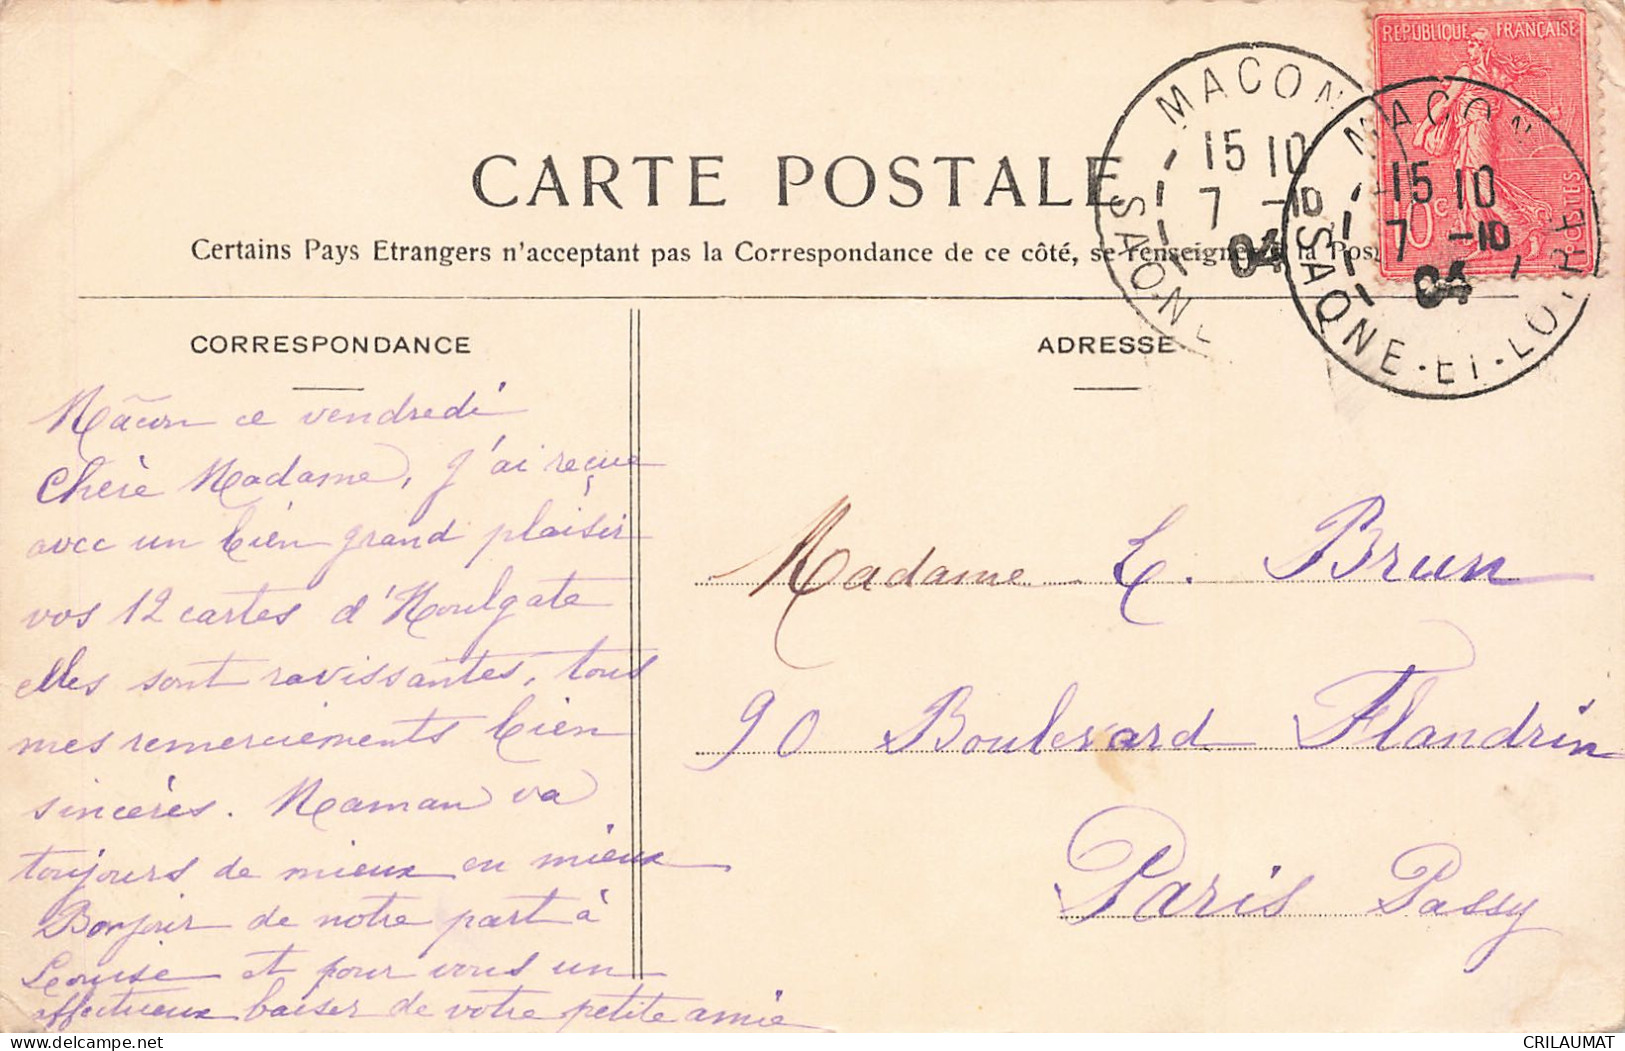 REPUBLIQUE FRANÇAISE
10c
POSTES
MACON
15 10
7 -10
04
SAONE
MACON
15 10
7 -10
04
SAONE-ET-LOIRE
CARTE POSTALE
Certains Pays Etrangers n'acceptant pas la Correspondance de ce côté, se renseigner à la Pos
CORRESPONDANCE
ADRESSE
Mâcon ce vendredi
Chère Madame, J'ai reçue
avec un bien grand plaisir
vos 12 cartes d'Houlgate
elles sont ravissantes, tous
mes remerciements bien
sincères. Maman va
toujours de mieux en mieux
Bonjour de notre part à
Louise et pour vous un
affectueux baiser de votre petite amie
Madame E. Brun
90 Boulevard Flandrin
Paris Passy
CRILAUMAT